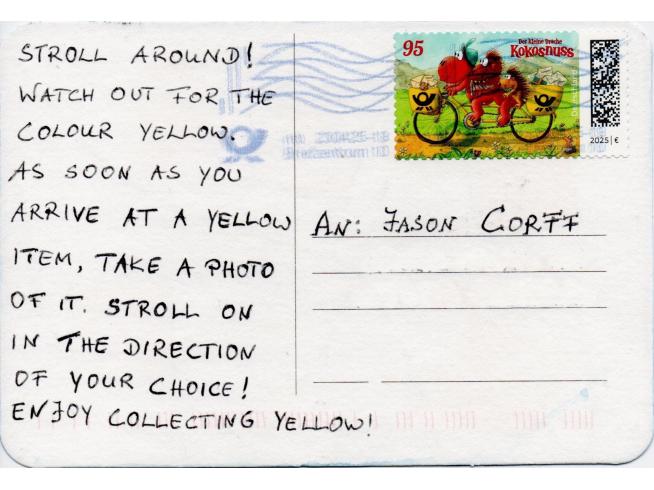 STROLL AROUND!
WATCH OUT FOR THE
COLOUR YELLOW.
AS SOON AS YOU
ARRIVE AT A YELLOW
ITEM, TAKE A PHOTO
OF IT. STROLL ON
IN THE DIRECTION
OF YOUR CHOICE!
ENJOY COLLECTING YELLOW!
95
Der kleine Drache
Kokosnuss
2025 | €
AN: JASON CORFF